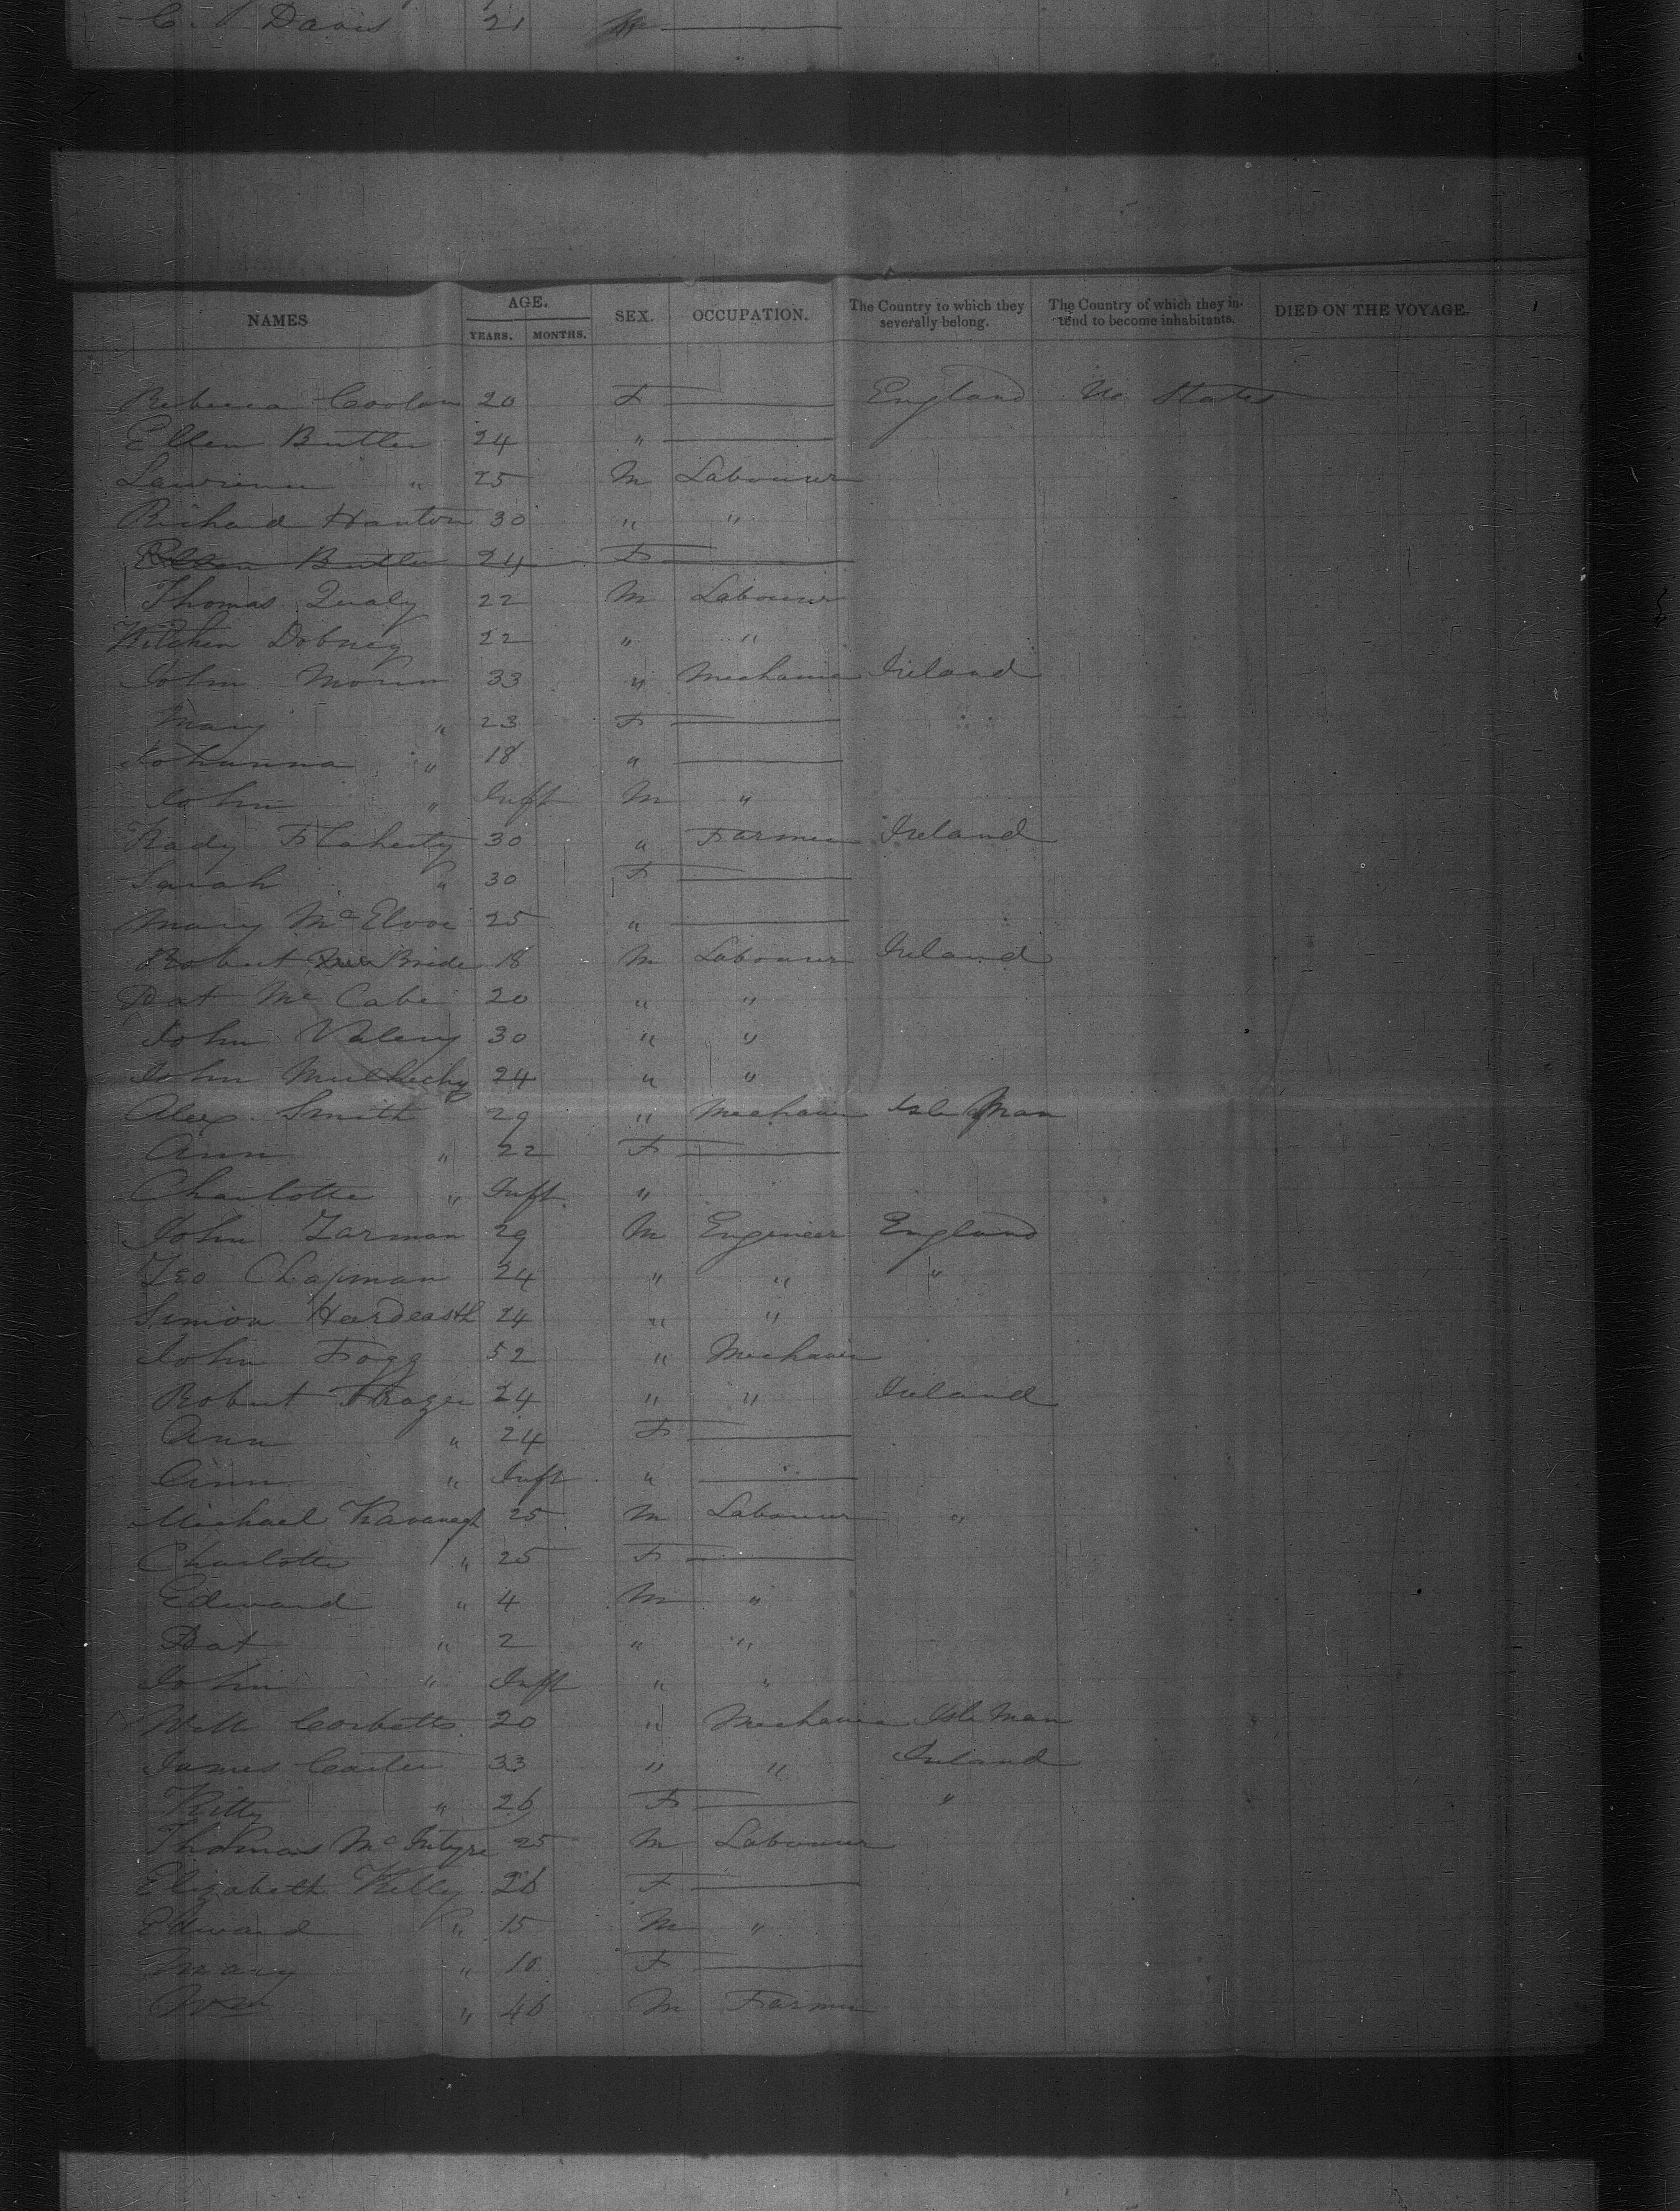 C. Davis 21
NAMES AGE. YEARS. MONTHS. SEX. OCCUPATION. The Country to which they severally belong. The Country of which they intend to become inhabitants. DIED ON THE VOYAGE.
Rebecca 20 F England U States
Ellen Butler 24 "
Lawrence " 25 M Labourer
Richard Hanton 30 " "
Ellen Butler 24 F
Thomas Qualy 22 M Labourer
Dobney 22 " "
John Moran 33 " Mechanic Ireland
Mary " 23 F
Johanna " 18 "
John " Inft M "
Flaherty 30 " Farmer Ireland
Sarah " 30 F
Mary McElvoe 25 "
Robert Bride 18 M Labourer Ireland
Pat McCabe 20 " "
John 30 " "
John 24 " "
Alex. Smith 29 " Mechanic Isle Man
Ann " 22 F
Charlotte " Inft "
John Jarman 29 M Engineer England
Geo Chapman 24 " " "
Simon Hardcastle 24 " "
John Fogg 52 " Mechanic
Robert Frazer 24 " " Ireland
Ann " 24 F
Ann " Inft "
Michael Kavanagh 25 M Labourer "
Charlotte " 25 F
Edward " 4 M "
Pat " 2 " "
John " Inft " "
Will Corbett 20 " Mechanic Isle Man
James Carter 33 " " Ireland
Kitty " 26 F "
Thomas McIntyre 25 M Labourer
Elizabeth Kelly 26 F
Edward " 15 M "
Mary " 10 F
Wm " 46 M Farmer